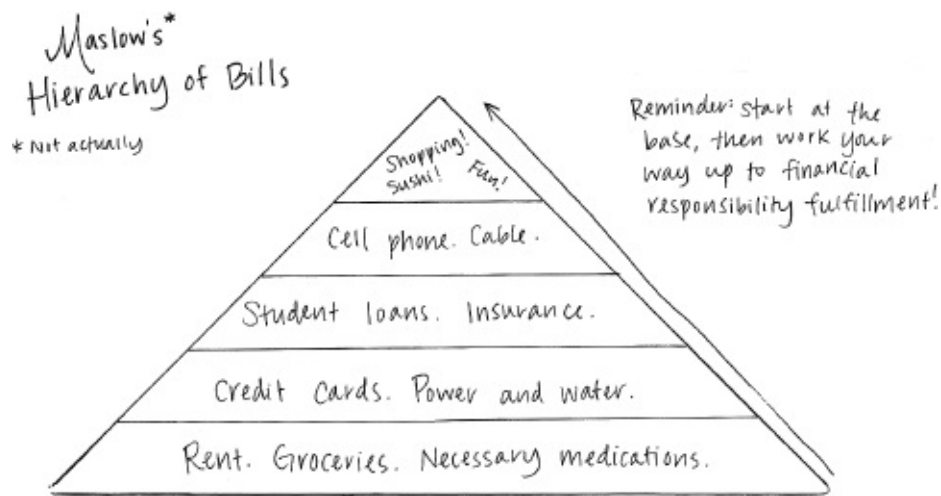 Maslow's*
Hierarchy of Bills
* Not actually
Reminder: start at the
base, then work your
way up to financial
responsibility fulfillment!
Shopping!
Sushi! Fun!
Cell phone. Cable.
Student loans. Insurance.
Credit Cards. Power and water.
Rent. Groceries. Necessary medications.